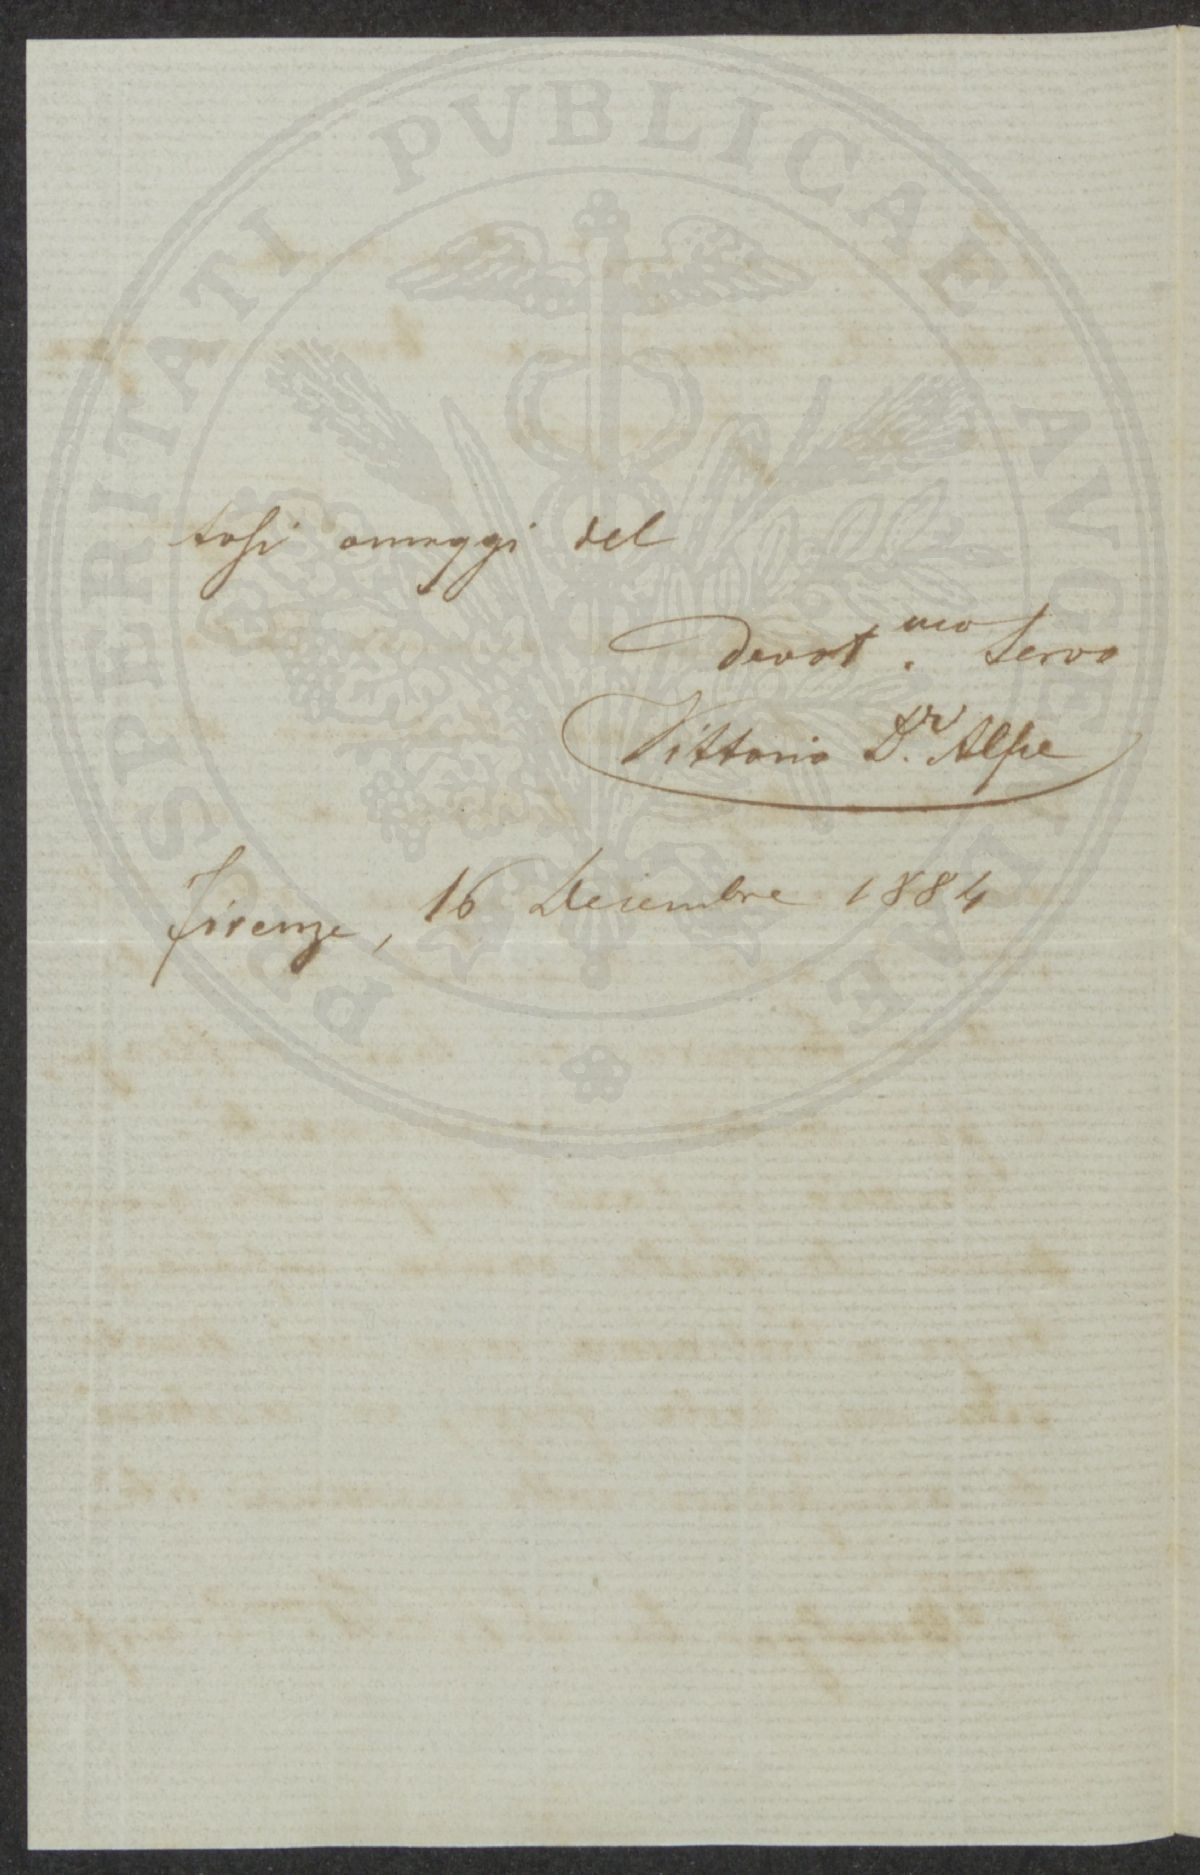 PROSPERITATI PVBLICAE AVGENDAE
tosi omaggi del
Devot.mo Servo
Vittorio D.r Alpe
Firenze, 16 Decembre 1884